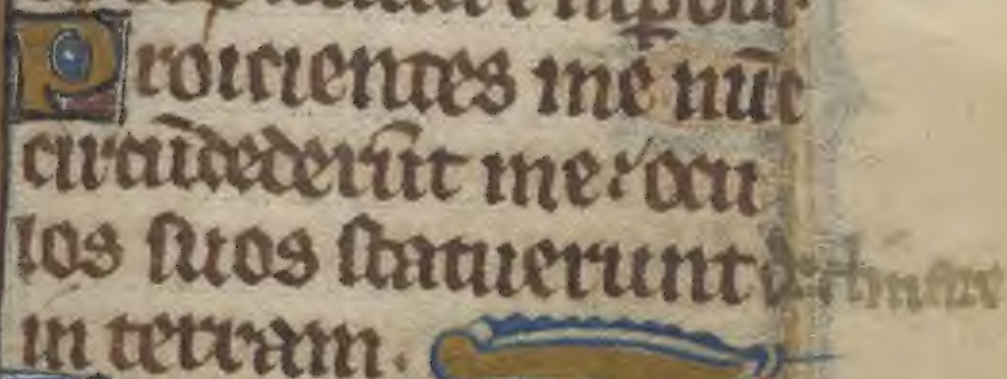 Proicientes me nūc
circūdederūt me: ocu
los suos statuerunt de
in terram.